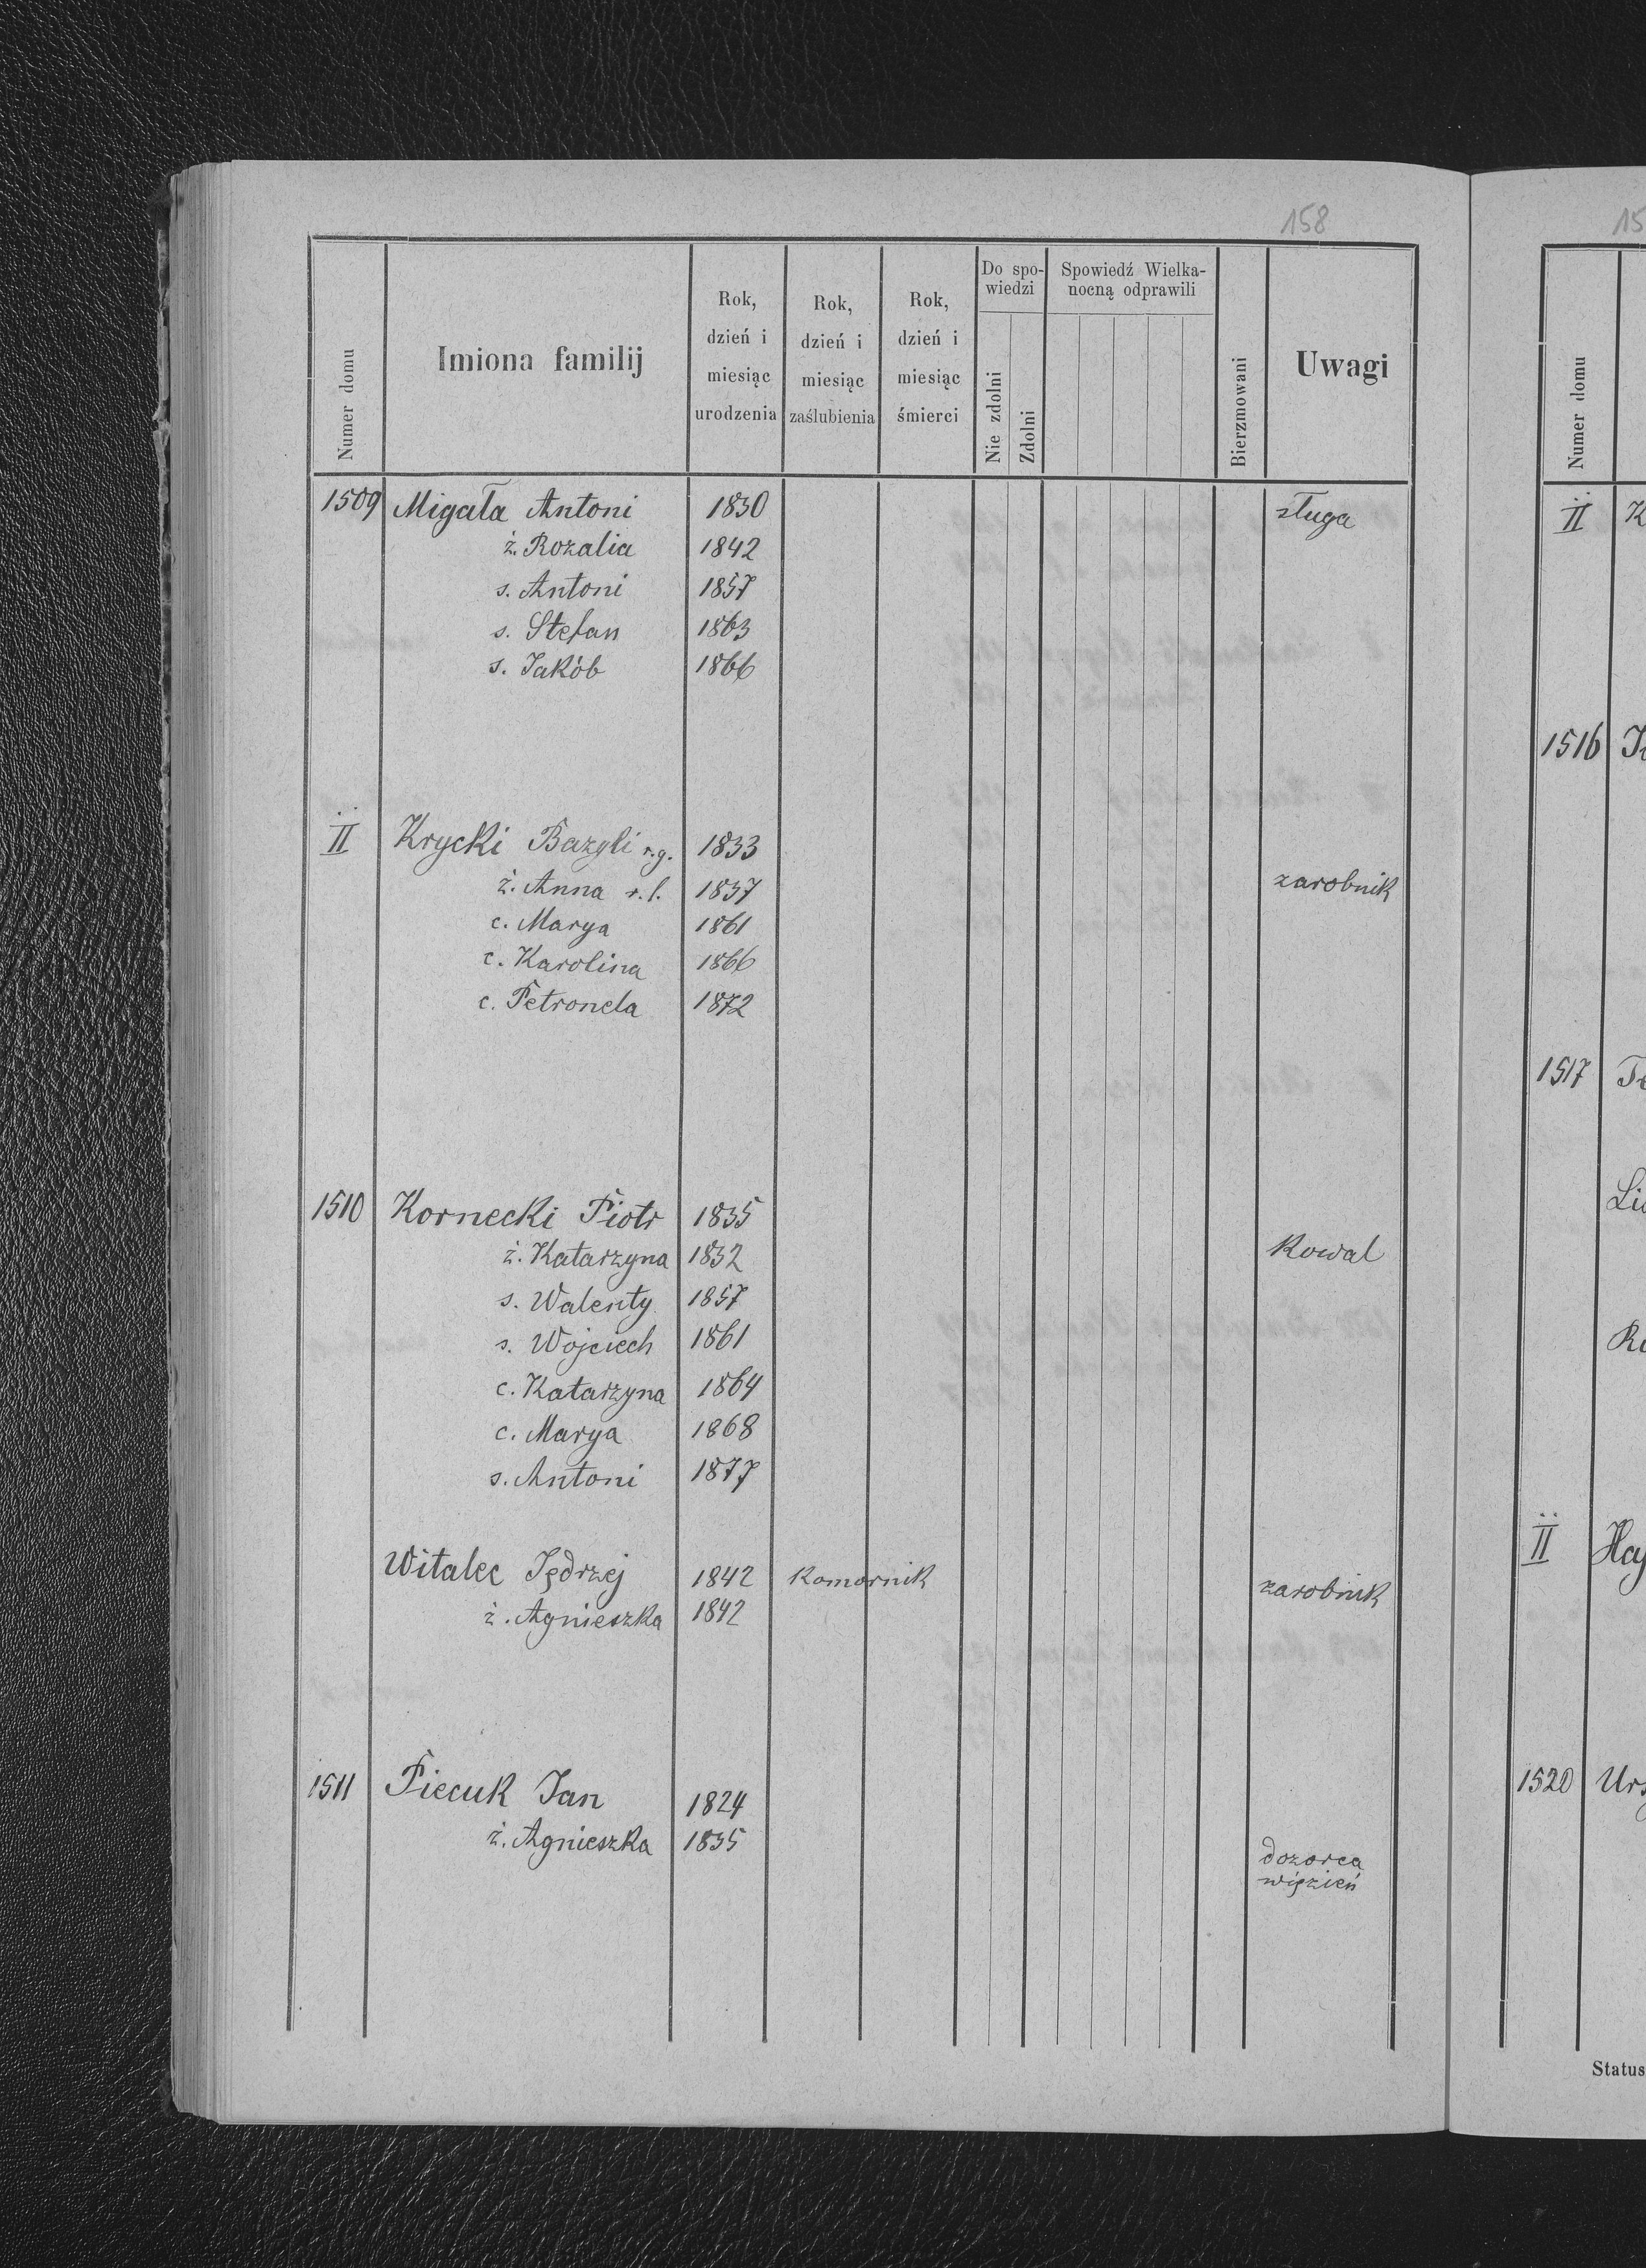 158
Numer domu
Imiona familij
Rok, dzień i miesiąc urodzenia
Rok, dzień i miesiąc zaślubienia
Rok, dzień i miesiąc śmierci
Do spo-
wiedzi
Nie zdolni
Zdolni
Spowiedź Wielka-
nocną odprawili
Bierzmowani
Uwagi
1509 Migała Antoni 1830 sługa
ż. Rozalia 1842
s. Antoni 1857
s. Stefan 1863
s. Jakób 1866
II Krycki Bazyli r.g. 1833
ż. Anna r.l. 1837 zarobnik
c. Marya 1861
c. Karolina 1866
c. Petronela 1872
1510 Kornecki Piotr 1835
ż. Katarzyna 1832 Kowal
s. Walenty 1857
s. Wojciech 1861
c. Katarzyna 1864
c. Marya 1868
s. Antoni 1877
Witalec Jędrzej 1842 Komornik zarobnik
ż. Agnieszka 1842
1511 Piecuk Jan 1824
ż. Agnieszka 1835
dozorca
więzień
15
Numer domu
II K
1516
1517
Li
II Hay
1520 Urs
Status